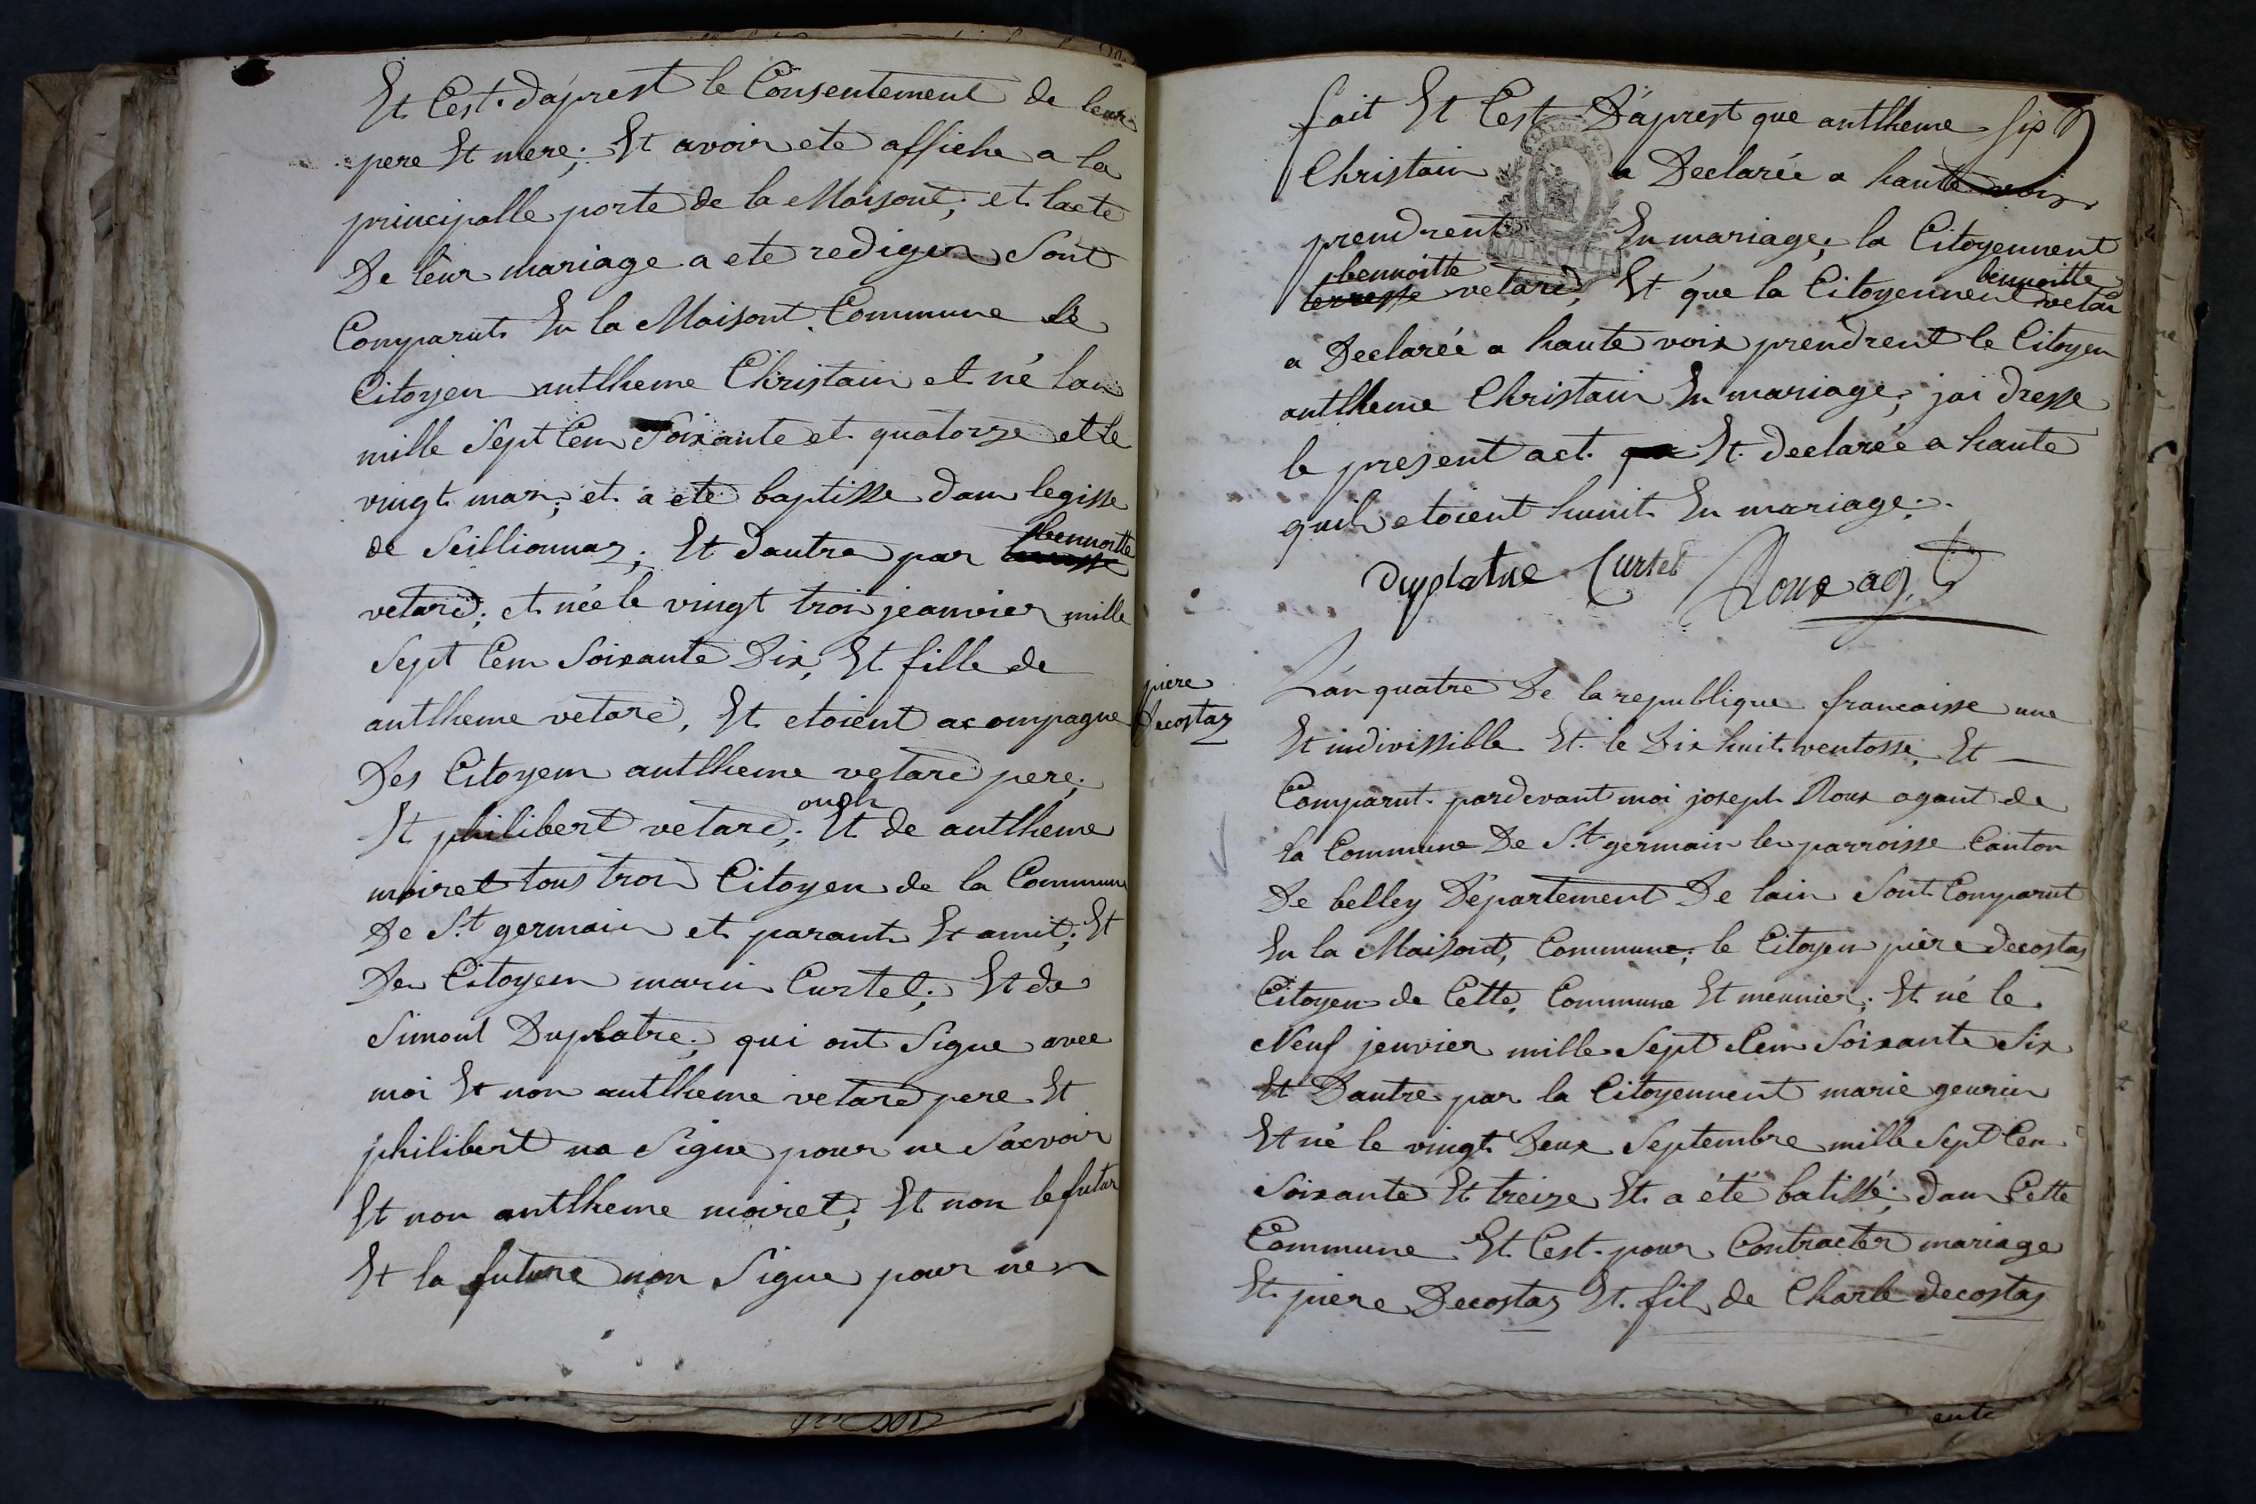 Et Cest. dáprest le Consentement de leur
pere Et mere; Et avoir ete affiche a la
principalle porte de la Maisont; et lacte
De leur mariage a ete rediger Sont
Comparut. En la Maisont Commune le
Citoyen antlheme Christain et né lan
mille Sept Cem Soixante et quatorze et le
vingt mars; et a ete baptisse dam legisse
de Seillionnaz; Et dautre par bennoitte
vetard; et née le vingt troi jeanvier mille
Sept Cem Soixante Dix, Et fille de
antlheme vetard, Et etoient acompagne
Des Citoyem antlheme vetard pere;
oncle
Et philibert vetard; Et de antlheme
moiret tous troi Citoyen de la Commune
De St germain et parant Et amit; Et
De Citoyem marin Curtel; Et de
Simont Duplatre; qui ont Signe avec
moi Et non antlheme vetard pere Et
philibert na Signe pour ne Sacvoir
Et non antlheme moiret; Et non le futur
Et la future non Signe pour nen
fait Et Cest Dáprest que antlheme
Christain a Declarée a haute voix
prendrent En mariage; la Citoyennent
bennoitte bennoitte
terresse vetard, Et que la Citoyennent vetar
a Declarée a haute voix prendrent le Citoyen
antlheme Christain En mariage; jai dresse
le present act. Et. declarée a haute
quil etoient hunit En mariage;
Duplatre Curtel Roux agt
piere
Decostaz
Lán quatre De la republique francaisse une
Et indivissible Et. le Dix huit. ventosse, Et
Comparut. pardevant moi joseph Roux agant de
la Commune De St germain le parroisse Canton
De belley Département De lain Sont Comparut
En la Maisont, Commune; le Citoyen piere decostaz
Citoyen de Cette, Commune Et meunier; Et né le
Neuf jenvier mille Sept Cem Soixante Six
Et Dautre par la Citoyennent marie geurin
Et né le vingt Deux Septembre mille Sept Cen
Soixante Et treize Et a été batissé; dam Cette
Commune Et. Cest. pour Contracter mariage
Et. piere Decostaz Et. fil de Charle decostaz
ente